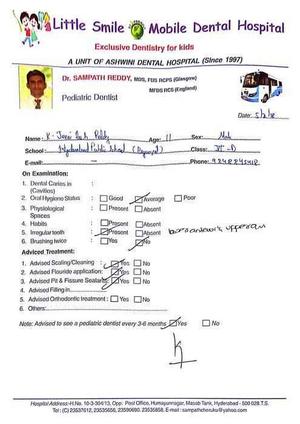 Little Smile Mobile Dental Hospital
Exclusive Dentistry for kids
A UNIT OF ASHWINI DENTAL HOSPITAL (Since 1997)
Dr. SAMPATH REDDY, MDS, FDS RCPS (Glasgow)
MFDS RCS (England)
Pediatric Dentist
Date:
Name: Reddy Age: 11 Sex: Male
School: Hyderabad Public School Class:
E-mail: Phone:
On Examination:
1. Dental Caries in (Cavities) :
2. Oral Hygiene Status : Good Average Poor
3. Physiological Spaces : Present Absent
4. Habits : Present Absent
5. Irregular teeth : Present Absent
6. Brushing twice : Yes No
Adviced Treatment:
1. Advised Scaling/Cleaning : Yes No
2. Advised Flouride application: Yes No
3. Advised Pit & Fissure Sealants: Yes No
4. Advised Filling in
5. Advised Orthodontic treatment : Yes No
6. Others:
Note: Advised to see a pediatric dentist every 3-6 months Yes No
Hospital Address-H.No. 10-3-304/13, Opp. Post Office, Humayunnagar, Masab Tank, Hyderabad - 500 028 T.S.
Tel : (C) 23537612, 23535658, 23590680. 23535858. E-mail : sampathchoruku@yahoo.com